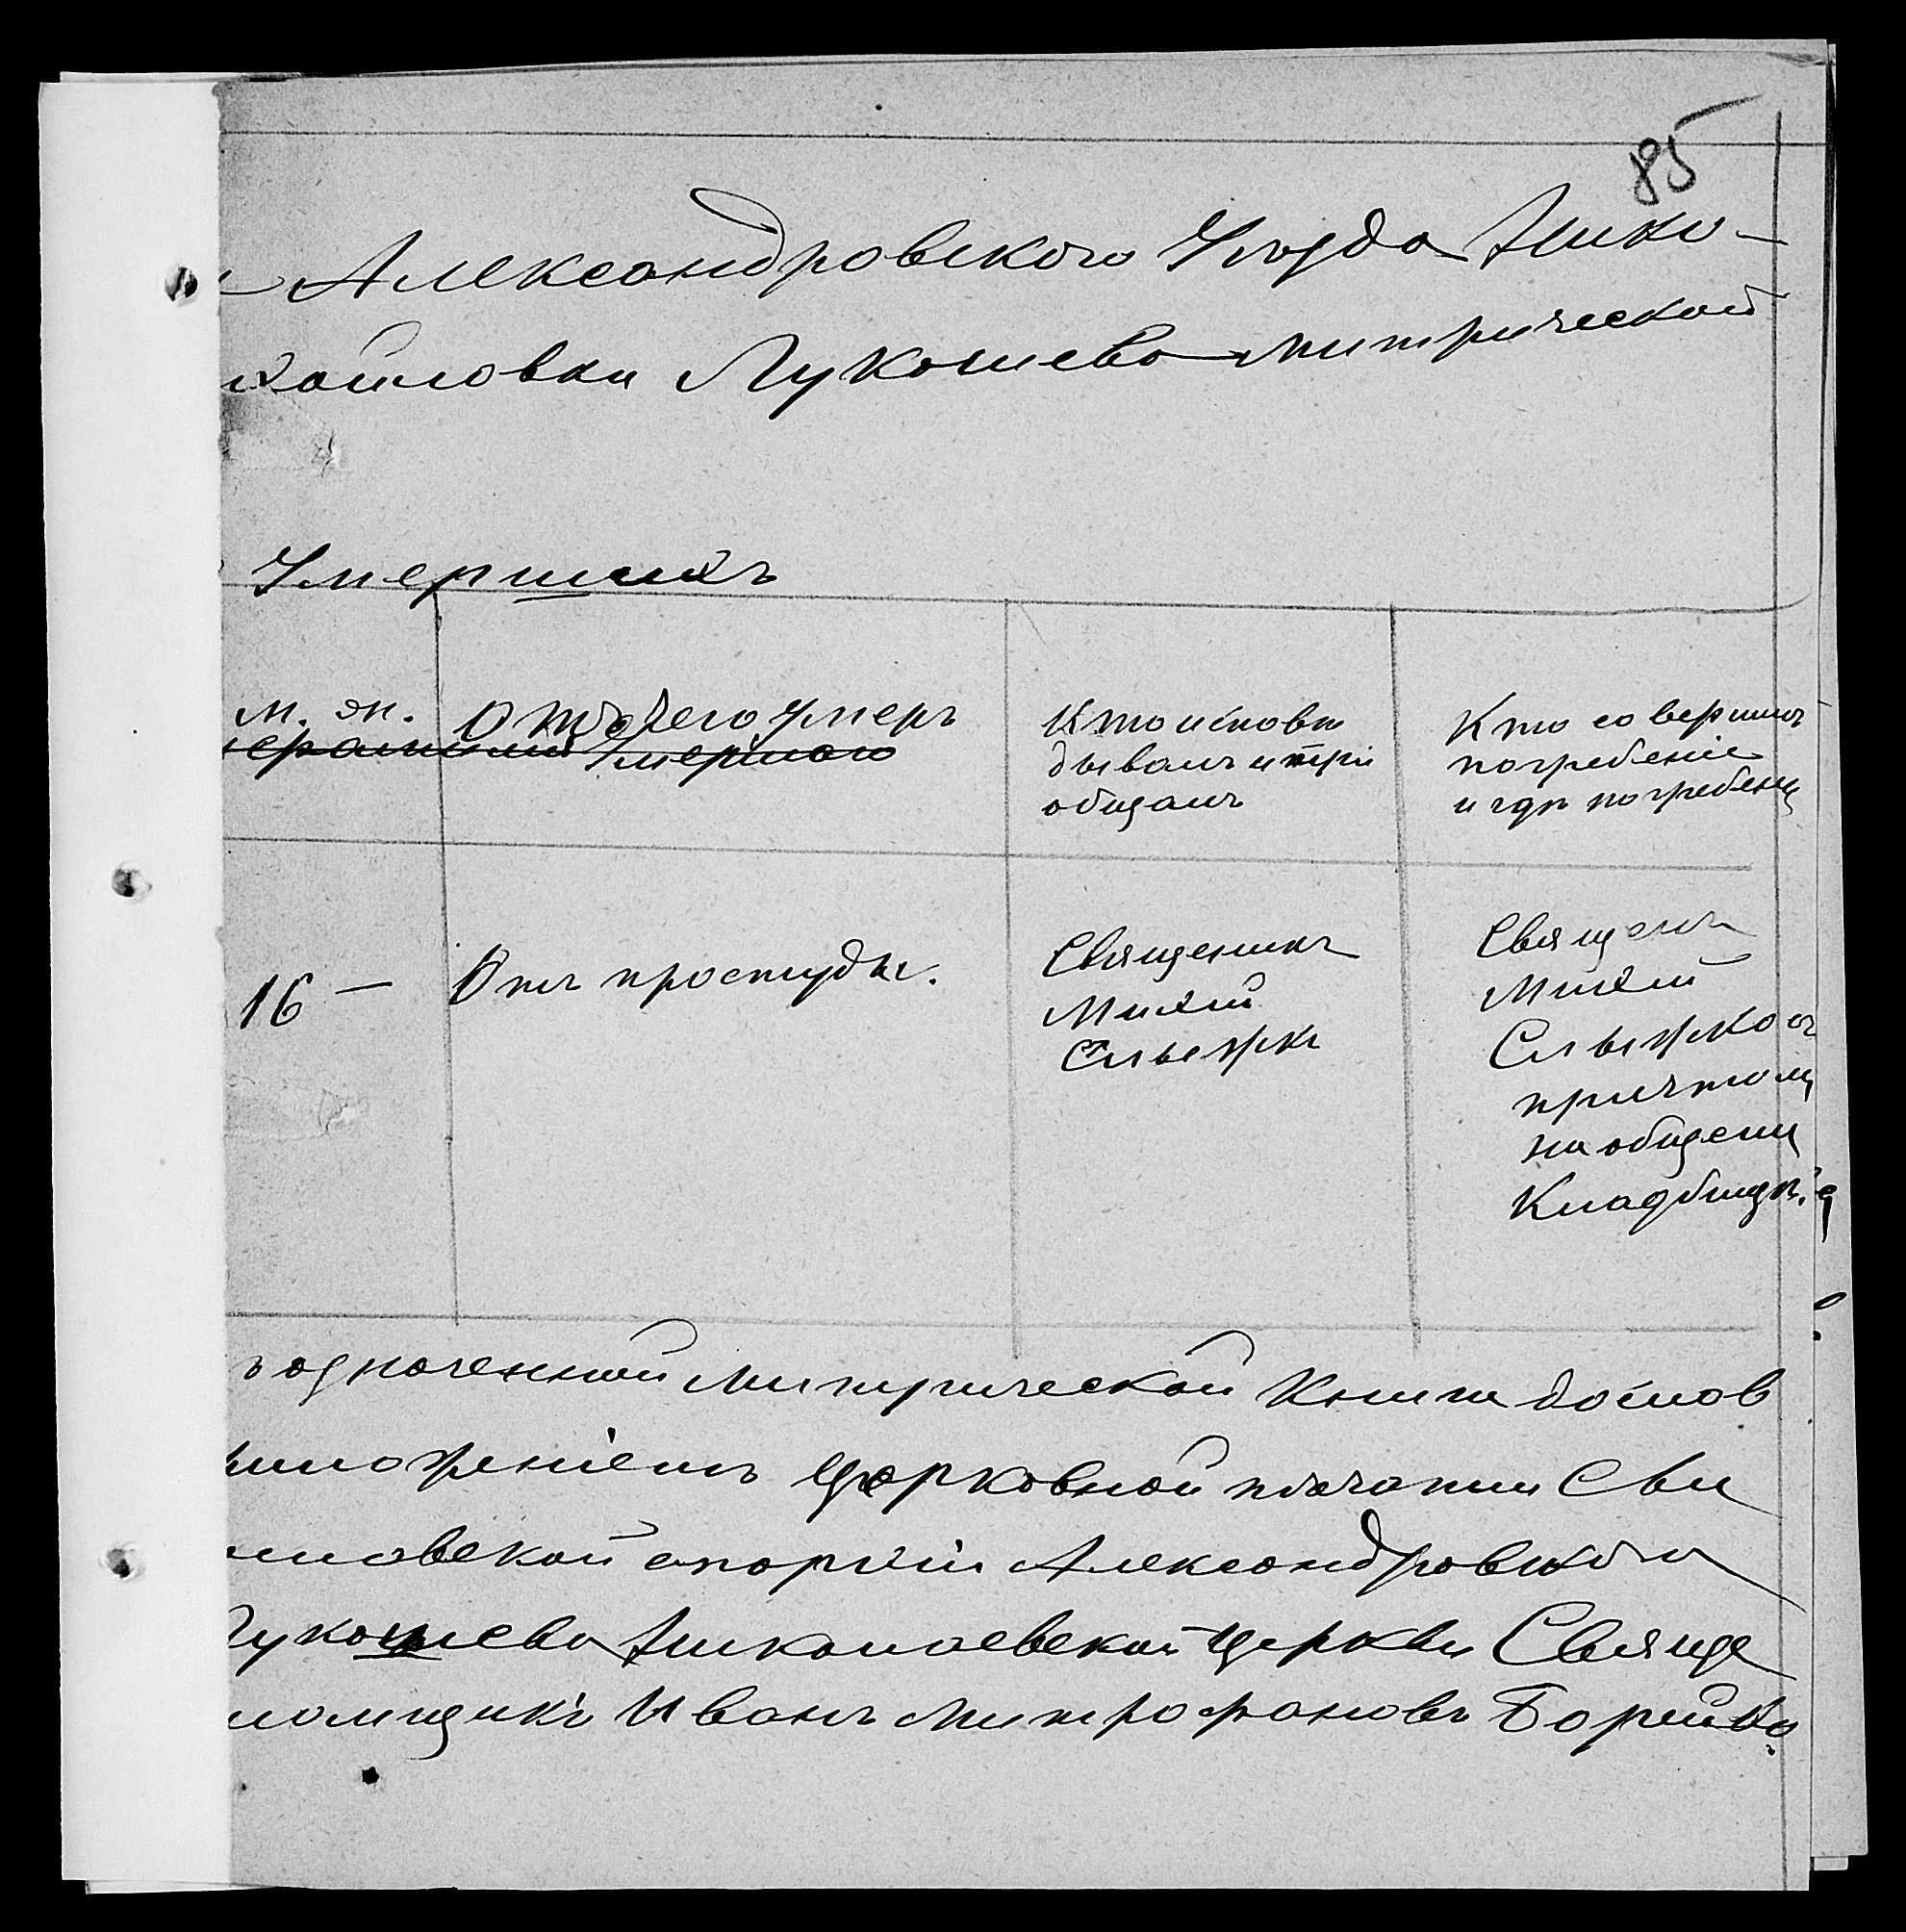 85
Александровскаго Уѣзда Нико-
хайловки Лукашево метрической
Умершихъ
м. ж. Отъ чего умеръ
Умершаго
Кто исповѣ
дывалъ и прі
общалъ
Кто совершилъ
погребеніе
и гдѣ погребены
16 — Отъ простуды.
Священикъ
Михаи
Слыжк
Священ
Михаи
Слыжко съ
причтомъ
на общемъ
Кладбищѣ.
подличенной Метрической Книги дослов
приложеніемъ Церковной печати Сви
Екатеринославской епархіи Александровскаго
Лукашево Николаевской Церкви Свяще
Псаломщикъ Иванъ Митрофановъ Борейко